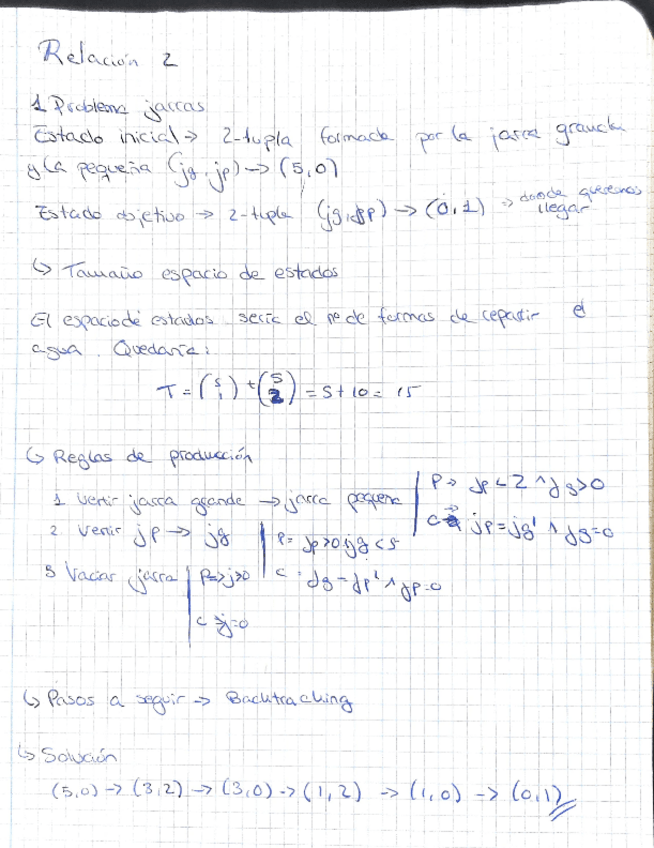 Relación 2
1 Problema jarras
Estado inicial → 2-tupla formada por la jarra grande
y la pequeña (jg, jp) → (5,0)
Estado objetivo → 2-tupla (jg, jp) → (0,1) → donde queremos llegar
↳ Tamaño espacio de estados
El espacio de estados sería el nº de formas de repartir el
agua. Quedaría:
T = (5 1) + (5 2) = 5 + 10 = 15
↳ Reglas de producción
1 Vertir jarra grande → jarra pequeña | P → jp < 2 ^ jg > 0
C → jp = jg' ^ jg = 0
2 Vertir jp → jg | P = jp > 0 jg < 5
C = jg = jp' ^ jp = 0
3 Vaciar jarra | P => j > 0
C j = 0
↳ Pasos a seguir → Backtracking
↳ Solución
(5,0) → (3,2) → (3,0) → (1,2) → (1,0) → (0,1)